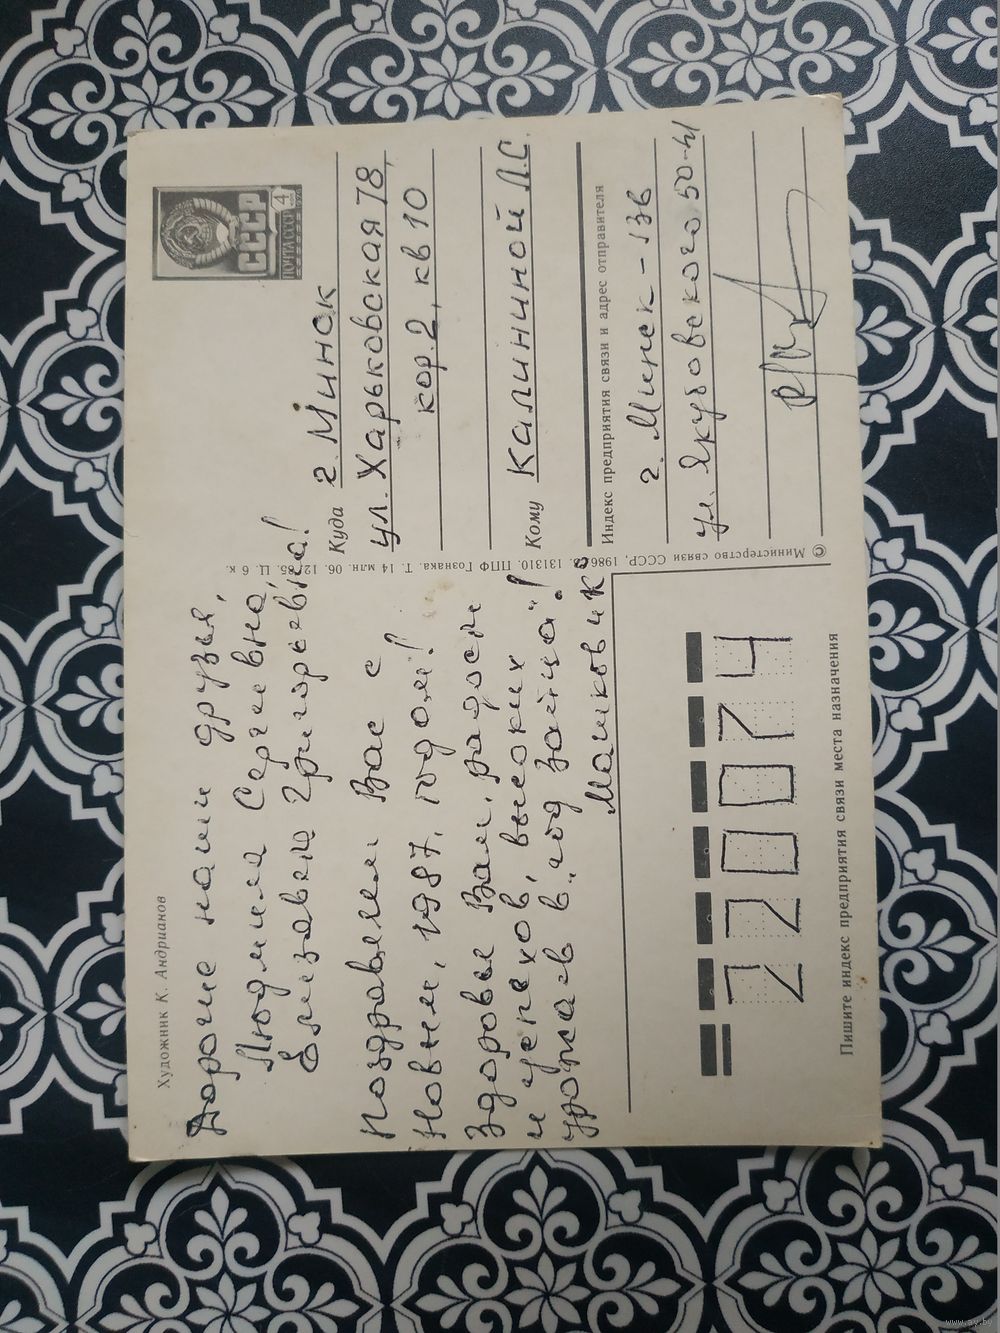 Художник К. Андрианов
Дорогие наши друзья,
Людмила Сергеевна,
Елизавета Григорьевна!
Поздравляем Вас с
Новым, 1987, годом!
Здоровья Вам, радости
и успехов, высоких
урожаев в „год зайца"!
Машковик
220074
Пишите индекс предприятия связи места назначения
© Министерство связи СССР, 1986. З. 131310. ППФ Гознака. Т. 14 млн. 06. 12. 85. Ц. 6 к.
СССР
ПОЧТА СССР
4
Куда г. Минск
ул. Харьковская 78,
кор. 2, кв 10
Кому Калининой Л.С.
Индекс предприятия связи и адрес отправителя
г. Минск - 136
ул. Якубовского 50-41
www.ay.by